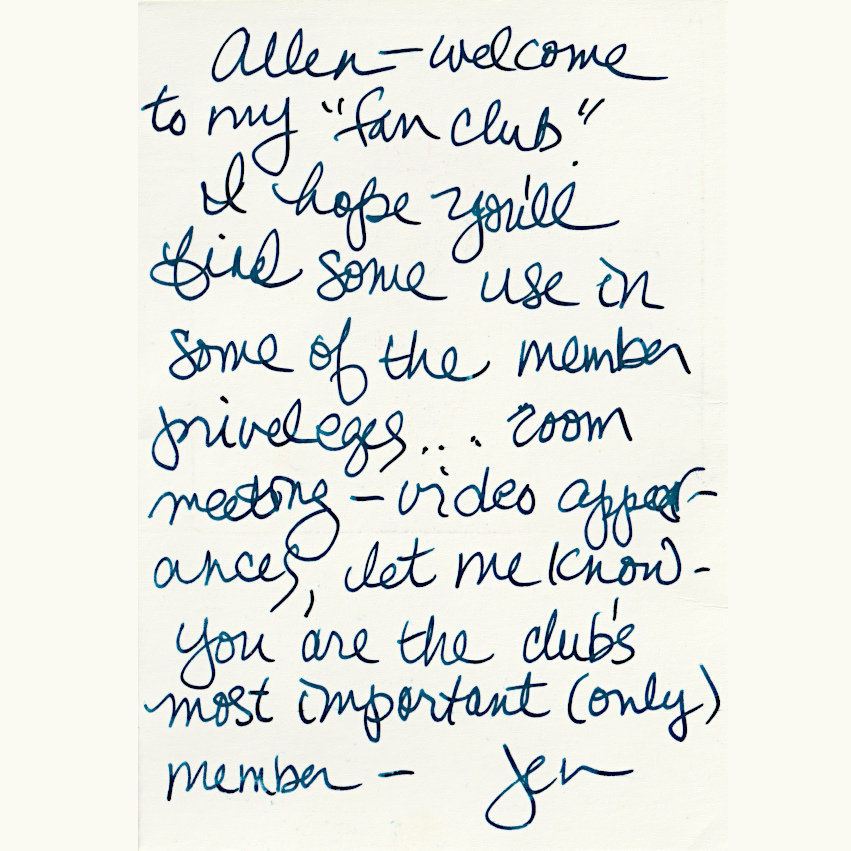 Allen - welcome
to my "fan club"
I hope you'll
find some use in
some of the member
priveleges... zoom
meeting - video appear-
ances, let me know -
you are the club's
most important (only)
member - Jen